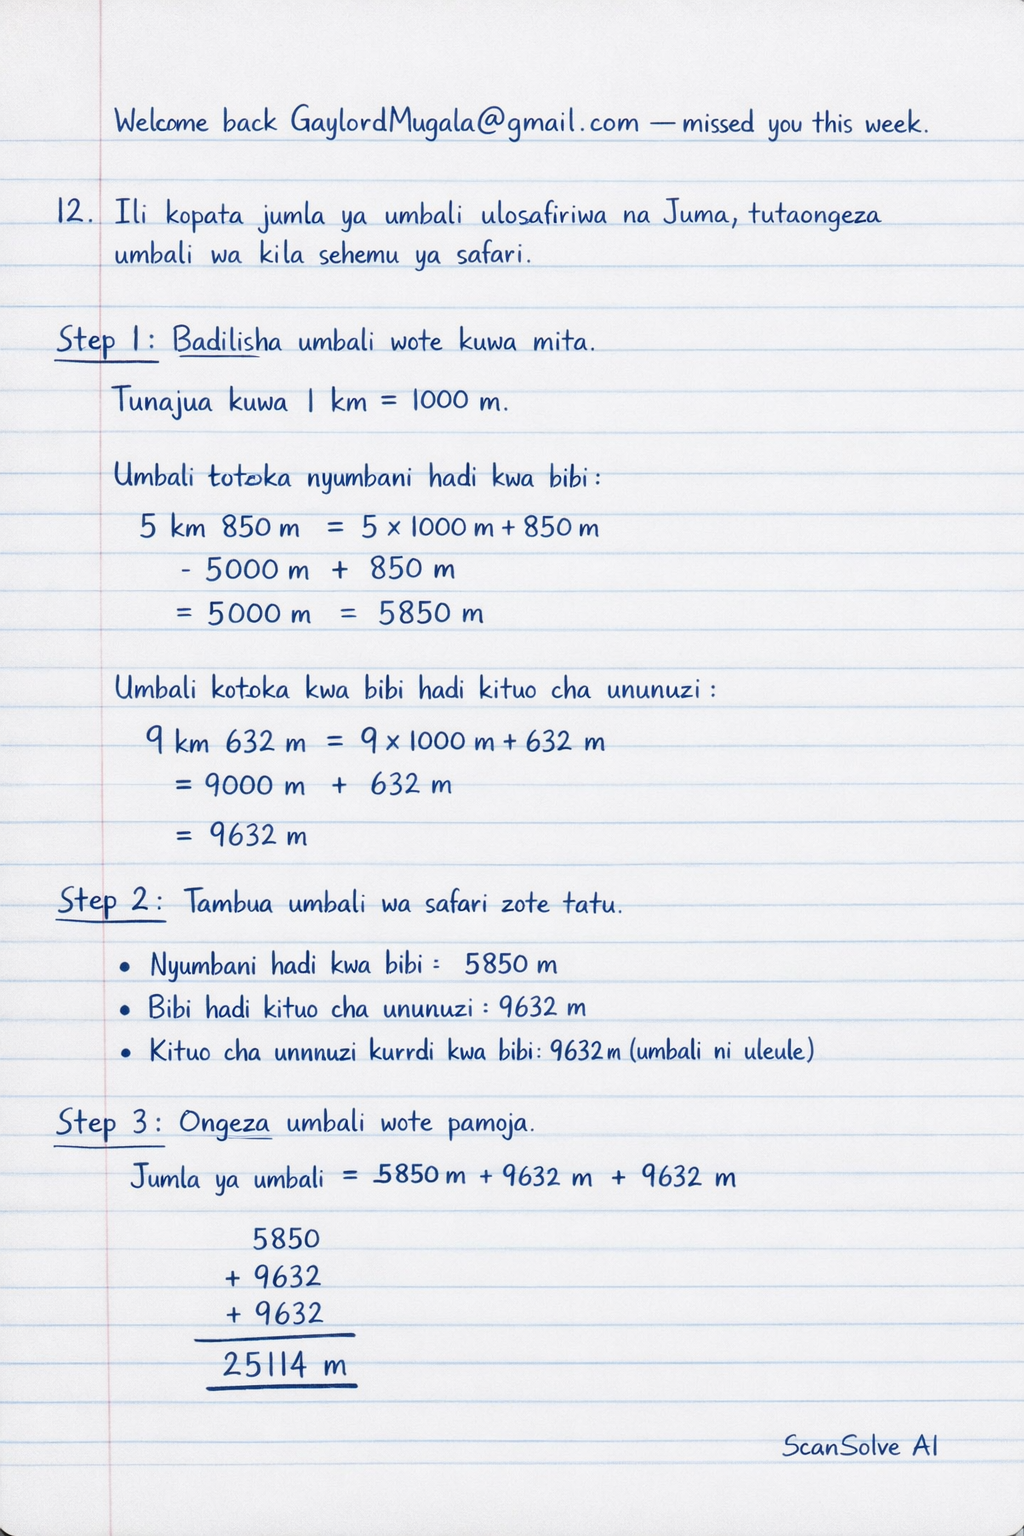 Welcome back GaylordMugala@gmail.com — missed you this week.
12. Ili kopata jumla ya umbali ulosafiriwa na Juma, tutaongeza
umbali wa kila sehemu ya safari.
Step 1: Badilisha umbali wote kuwa mita.
Tunajua kuwa 1 km = 1000 m.
Umbali totoka nyumbani hadi kwa bibi:
5 km 850 m = 5 × 1000 m + 850 m
- 5000 m + 850 m
= 5000 m = 5850 m
Umbali kotoka kwa bibi hadi kituo cha ununuzi:
9 km 632 m = 9 × 1000 m + 632 m
= 9000 m + 632 m
= 9632 m
Step 2: Tambua umbali wa safari zote tatu.
• Nyumbani hadi kwa bibi: 5850 m
• Bibi hadi kituo cha ununuzi: 9632 m
• Kituo cha unnnuzi kurrdi kwa bibi: 9632 m (umbali ni uleule)
Step 3: Ongeza umbali wote pamoja.
Jumla ya umbali = 5850 m + 9632 m + 9632 m
5850
+ 9632
+ 9632
25114 m
ScanSolve AI